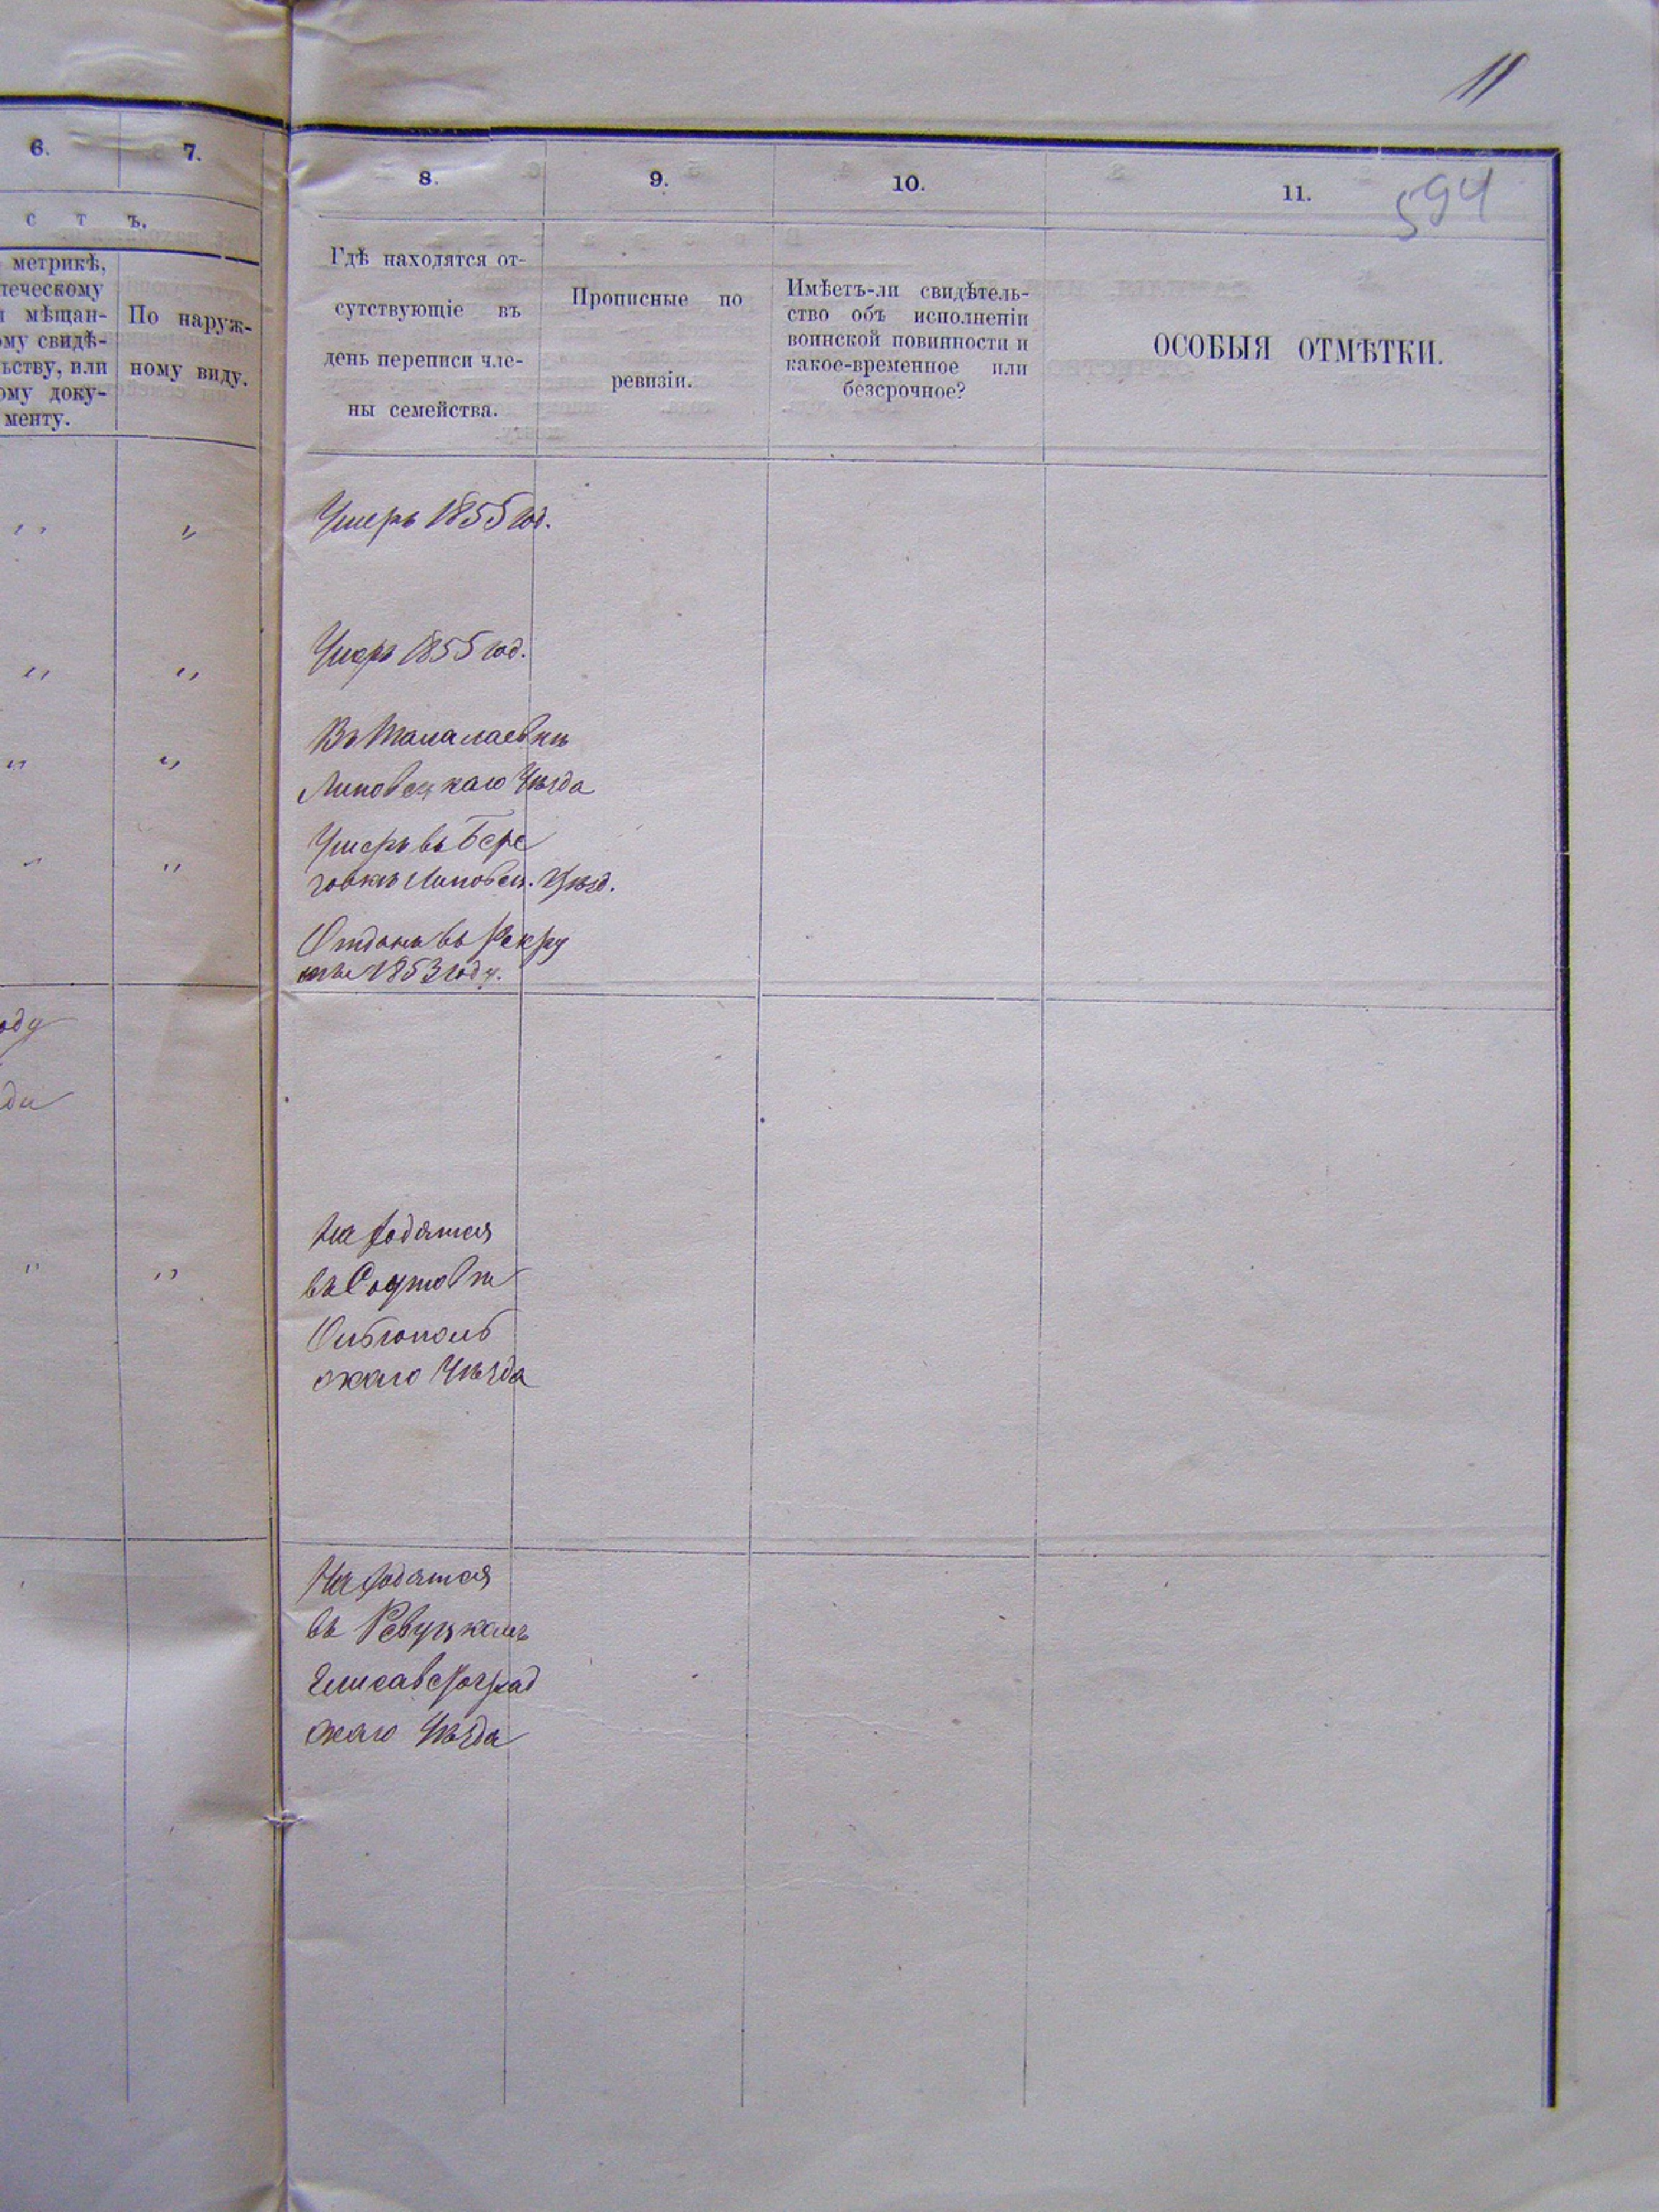 11
594
6.
7.
8.
9.
10.
11.
с т ъ.
метрикѣ,
печескому
мѣщан-
ому свидѣ-
ьству, или
ому доку-
менту.
По наруж-
ному виду.
Гдѣ находятся от-
сутствующіе въ
день переписи чле-
ны семейства.
Прописные по
ревизіи.
Имѣетъ-ли свидѣтель-
ство объ исполненіи
воинской повинности и
какое-временное или
безсрочное?
ОСОБЫЯ ОТМѢТКИ.
" "
Умеръ 1855 год.
" "
Умеръ 1855 год.
" "
Въ Талалаевкѣ
Липовецкаго Уѣзда
" "
Умеръ въ Бере
говкѣ Липовец. Уѣзд.
Отданъ въ рекру
ты 1853 году.
оду
ди
" "
Находятся
въ
Ольгополь
скаго Уѣзда
Находятся
въ Ревуцкомъ
Елисаветоград
скаго Уѣзда